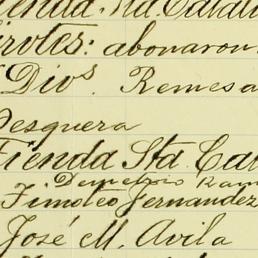 Tienda Sta. Catali
irotes: abonaron
Divs. Remesa
Pesquera
Tienda Sta Cat
Demetrio Ram
Timoteo Fernandez
José M. Avila